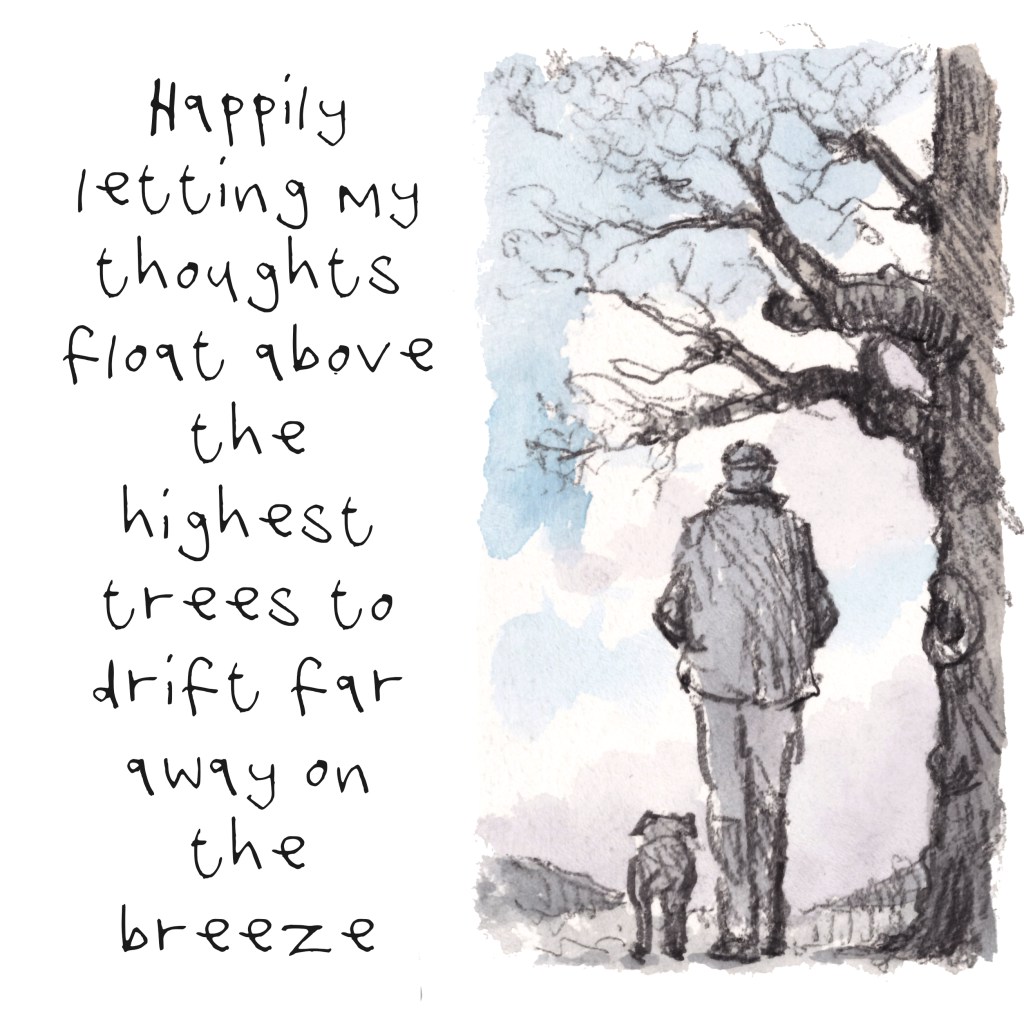 Happily
letting my
thoughts
float above
the
highest
trees to
drift far
away on
the
breeze